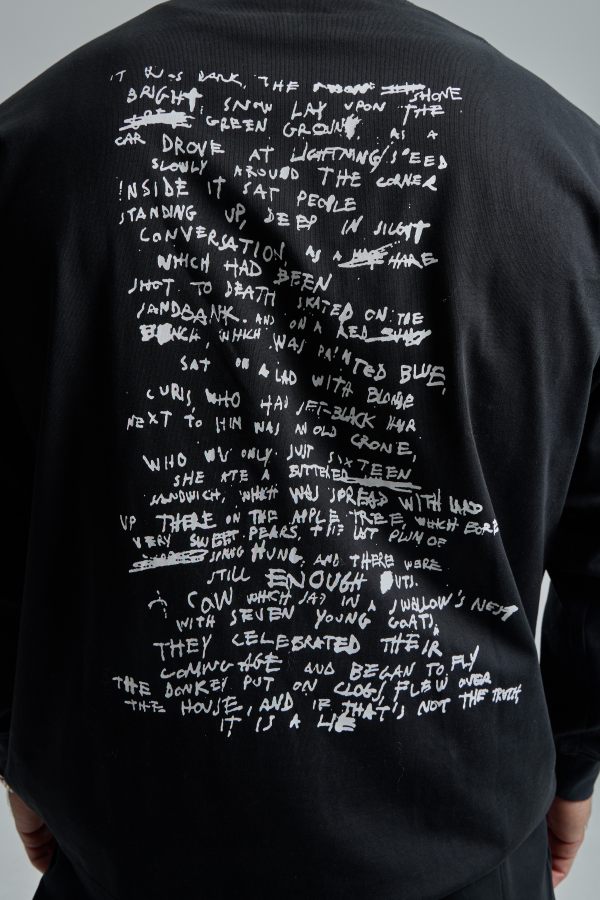 IT WAS DARK, THE MOON SHONE
BRIGHT, SNOW LAY UPON THE
GREEN GROUND, AS A
CAR DROVE AT LIGHTNING SPEED
SLOWLY AROUND THE CORNER
INSIDE IT SAT PEOPLE
STANDING UP, DEEP IN SILENT
CONVERSATION, AS A HARE
WHICH HAD BEEN
SHOT TO DEATH SKATED ON THE
SANDBANK. AND ON A RED
BENCH, WHICH WAS PAINTED BLUE,
SAT ON A LAD WITH BLONDE
CURLS, WHO HAD JET-BLACK HAIR
NEXT TO HIM WAS AN OLD CRONE,
WHO WAS ONLY JUST SIXTEEN
SHE ATE A BUTTERED
SANDWICH, WHICH WAS SPREAD WITH LARD
UP THERE ON THE APPLE TREE, WHICH BORE
VERY SWEET PEARS, THE LAST PLUM OF
SPRING HUNG, AND THERE WERE
STILL ENOUGH NUTS.
A COW WHICH SAT IN A SWALLOW'S NEST
WITH SEVEN YOUNG GOATS,
THEY CELEBRATED THEIR
COMING AGE AND BEGAN TO FLY
THE DONKEY PUT ON CLOGS, FLEW OVER
THE HOUSE, AND IF THAT'S NOT THE TRUTH,
IT IS A LIE